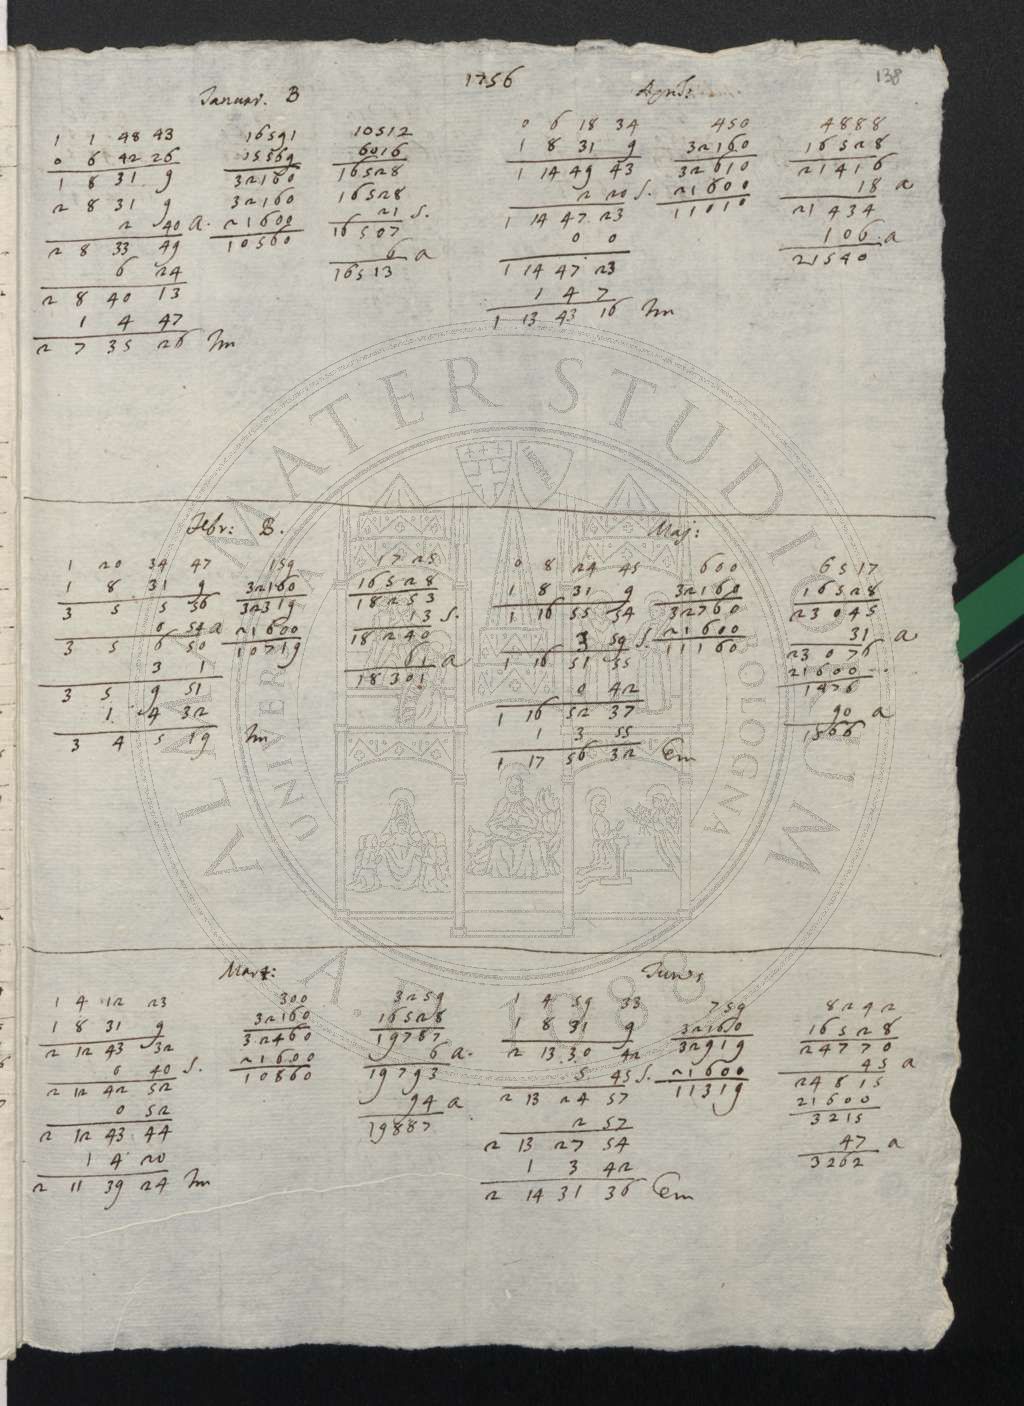 1756
138
Januar. B
1 1 48 43 16591 10512
0 6 42 26 15569 6016
1 8 31 9 32160 16528
2 8 31 9 32160 16528
2 40 a. 21600 21 s.
2 8 33 49 10560 16507
6 24 6 a
2 8 40 13 16513
1 4 47
2 7 35 26 Im
April:
0 6 18 34 450 4888
1 8 31 9 32160 16528
1 14 49 43 32610 21416
2 20 s. 21600 18 a
1 14 47 23 11010 21434
0 0 106 a
1 14 47 23 21540
1 4 7
1 13 43 16 Im
Febr: B.
1 20 34 47 159 1725
1 8 31 9 32160 16528
3 5 5 56 32319 18253
0 54 a 21600 13 s.
3 5 6 50 10719 18240
3 1 61 a
3 5 9 51 18301
1 4 32
3 4 5 19 Im
Maj:
0 8 24 45 600 6517
1 8 31 9 32160 16528
1 16 55 54 32760 23045
3 59 s. 21600 31 a
1 16 51 55 11160 23076
0 42 21600
1 16 52 37 1476
1 3 55 90 a
1 17 56 32 Em 1566
Mart:
1 4 12 23 300 3259
1 8 31 9 32160 16528
2 12 43 32 32460 19787
0 40 s. 21600 6 a.
2 12 42 52 10860 19793
0 52 94 a
2 12 43 44 19887
1 4 20
2 11 39 24 Im
Junes
1 4 59 33 759 8242
1 8 31 9 32160 16528
2 13 30 42 32919 24770
5 45 s. 21600 45 a
2 13 24 57 11319 24815
2 57 21600
2 13 27 54 3215
1 3 42 47 a
2 14 31 36 Em 3262
ALMA MATER STUDIORUM
A.D. 1088